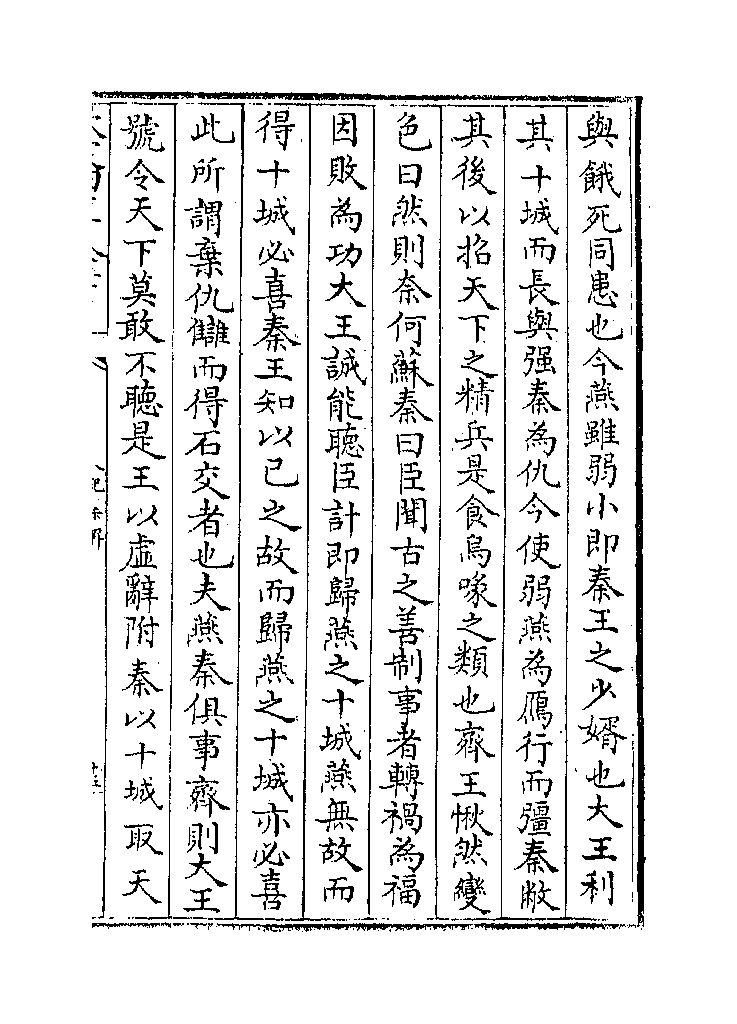 與餓死同患也今燕雖弱小即秦王之少婿也大王利
其十城而長與强秦為仇今使弱燕為鴈行而彊秦敝
其後以招天下之精兵是食烏喙之類也齊王愀然變
色曰然則奈何蘇秦曰臣聞古之善制事者轉禍為福
因敗為功大王誠能聽臣計即歸燕之十城燕無故而
得十城必喜秦王知以已之故而歸燕之十城亦必喜
此所謂棄仇讎而得石交者也夫燕秦俱事齊則大王
號令天下莫敢不聽是王以虛辭附秦以十城取天